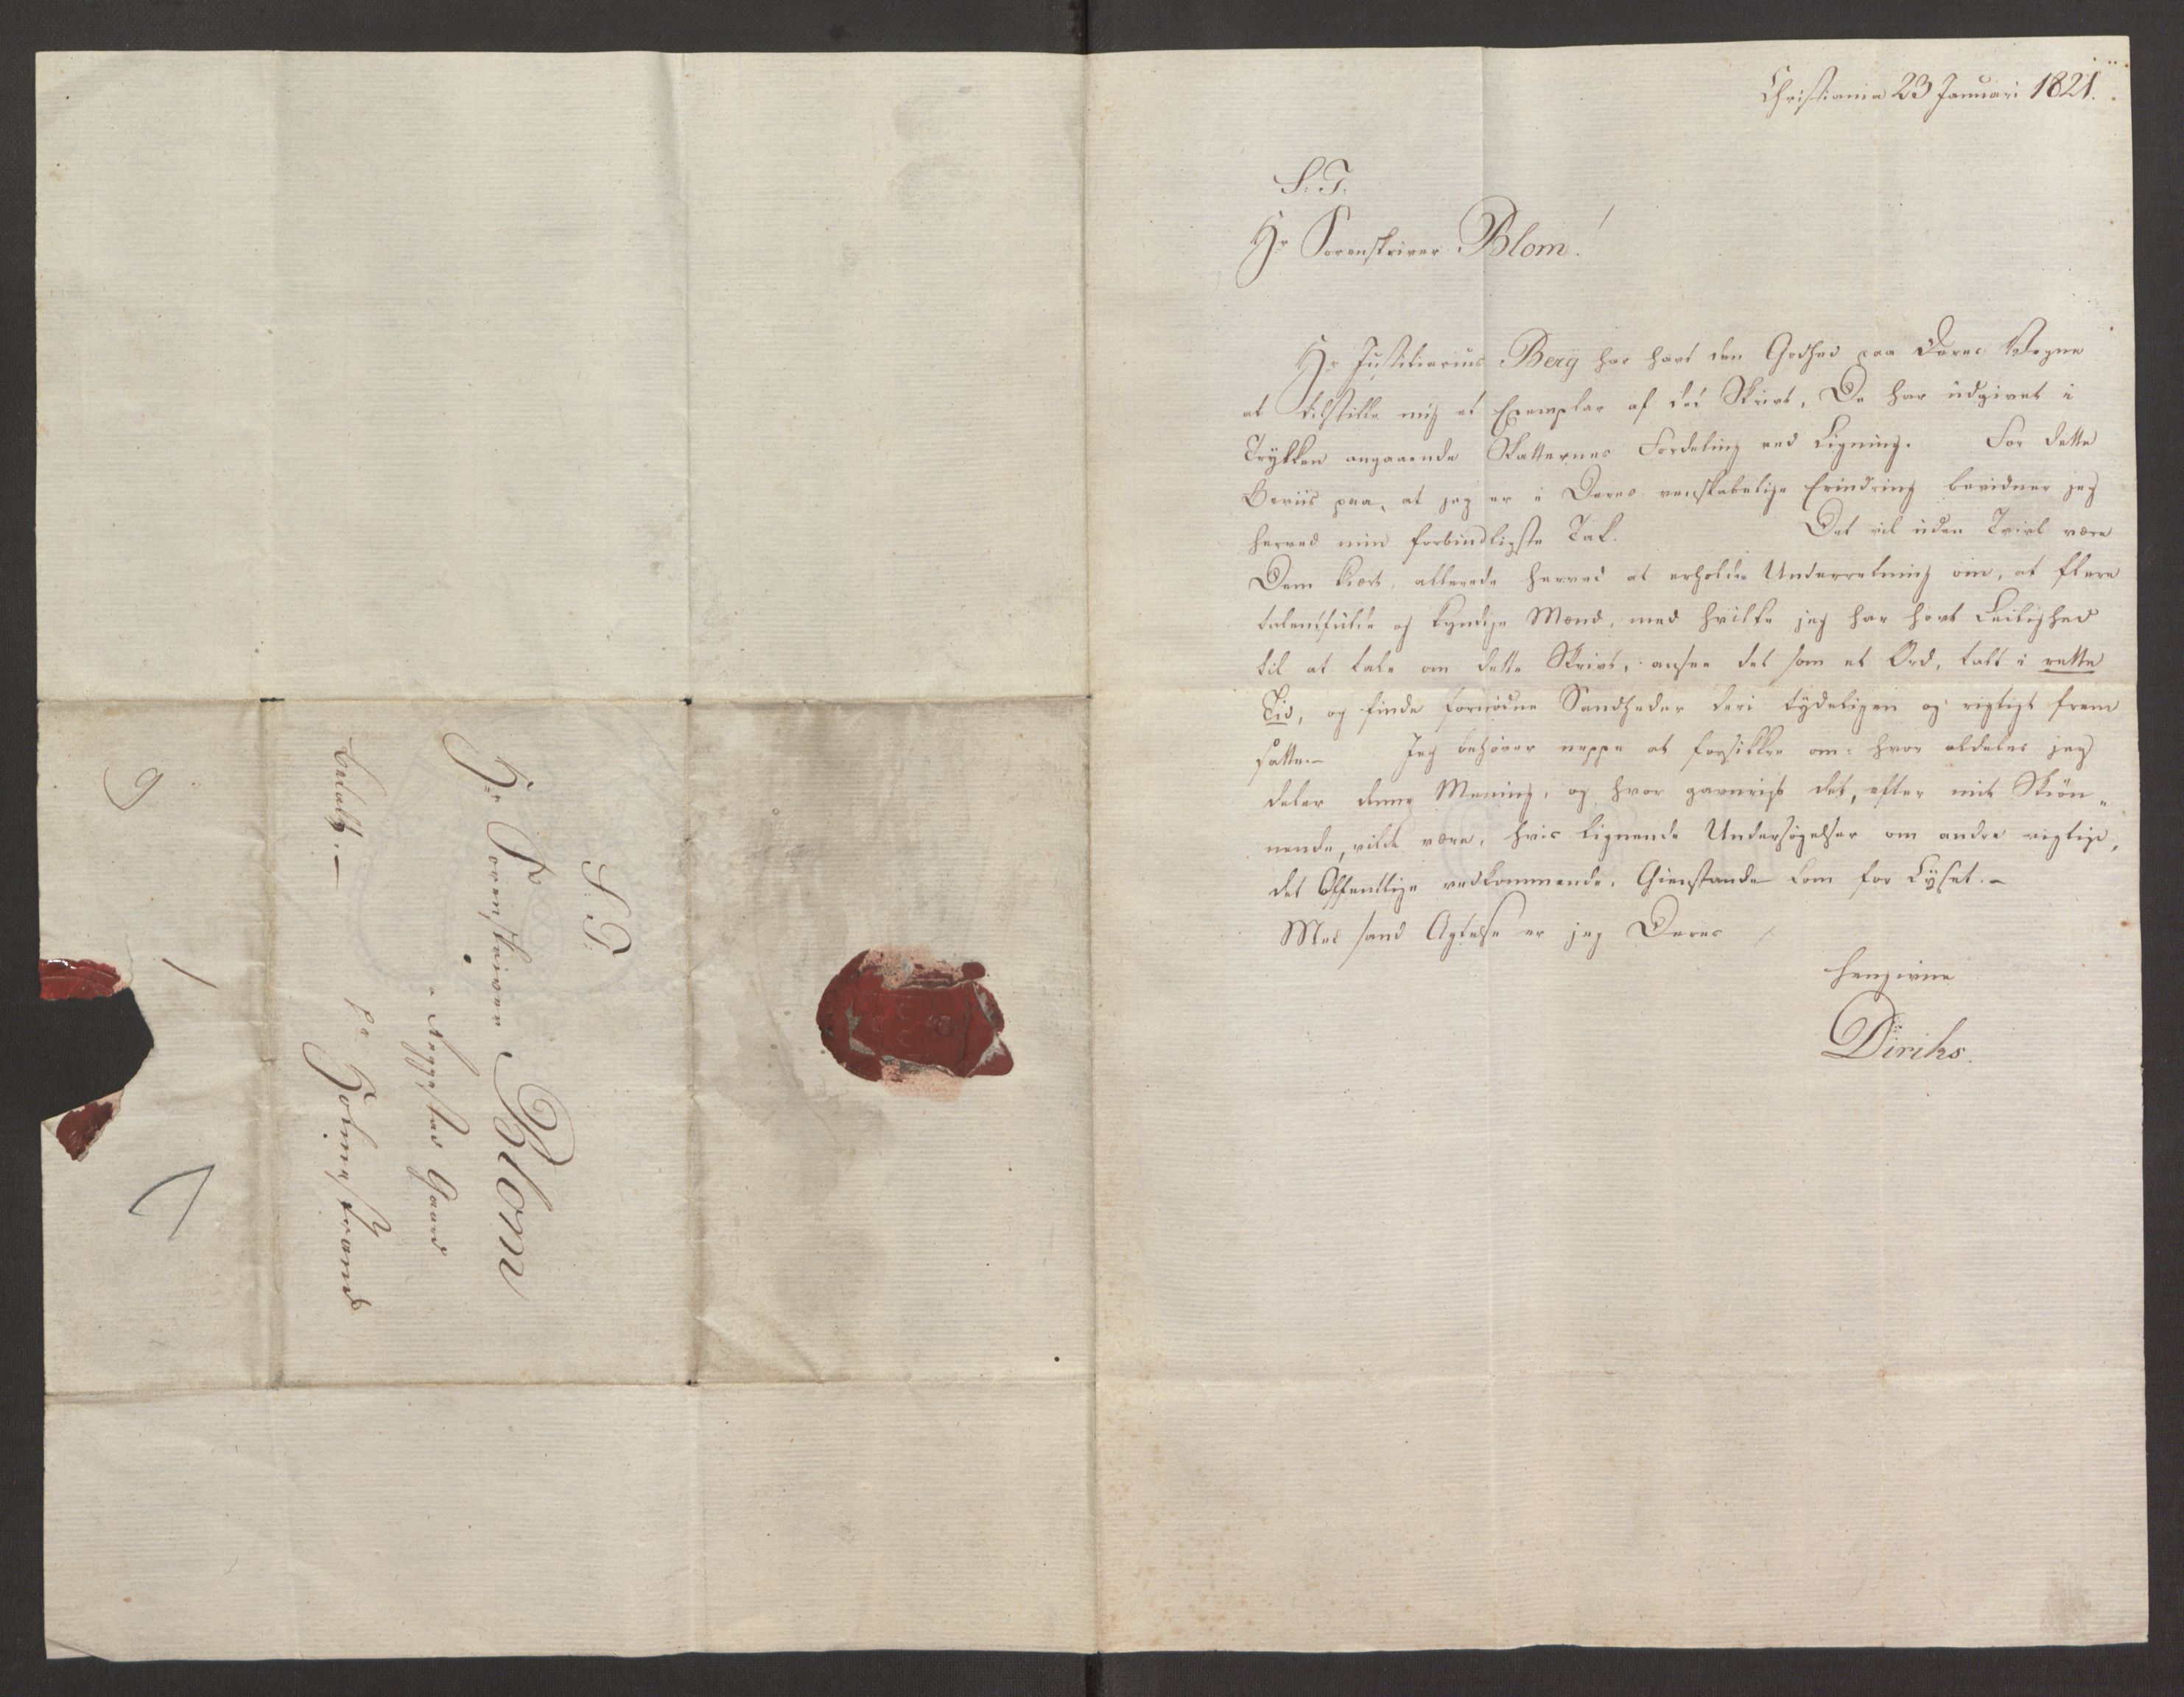 Christiania 23 Januari 1821.
S. T.
Hr Sorenskriver Blom!
Hr Justitiarius Berg har havt den Godhed paa Deres Vegne
at tilstille mig et Exemplar af det Skrivt, De har udgivet i
Trykken angaaende Skatternes Fordeling ved Ligning. For dette
Beviis paa, at jeg er i Deres venskabelige Erindring bevidner jeg
herved min forbindligste Tak. Det vil uden Tvivl være
Dem kiert allerede herved at erholde Underretning om, at flere
talentfulde og kyndige Mænd, med hvilke jeg har havt Leilighed
til at tale om dette Skrivt, ansee det som et Ord, talt i rette
Tid, og finde fornødne Sandheder deri tydeligen og rigtigt frem
satte.- Jeg behøver neppe at forsikkre om: hvor aldeles jeg
deler denne Mening, og hvor gavnrigt det, efter mit Skiøn„
nende, vilde være, hvis lignende Undersøgelser om andre vigtige,
det Offentlige vedkommende, Gienstande kom for Lyset.-
Med sand Agtelse er jeg Deres
hengivne
Diriks.
S. T.
Hr Sorenskriver Blom
Gaard
pr Holmestrand
betalt.-